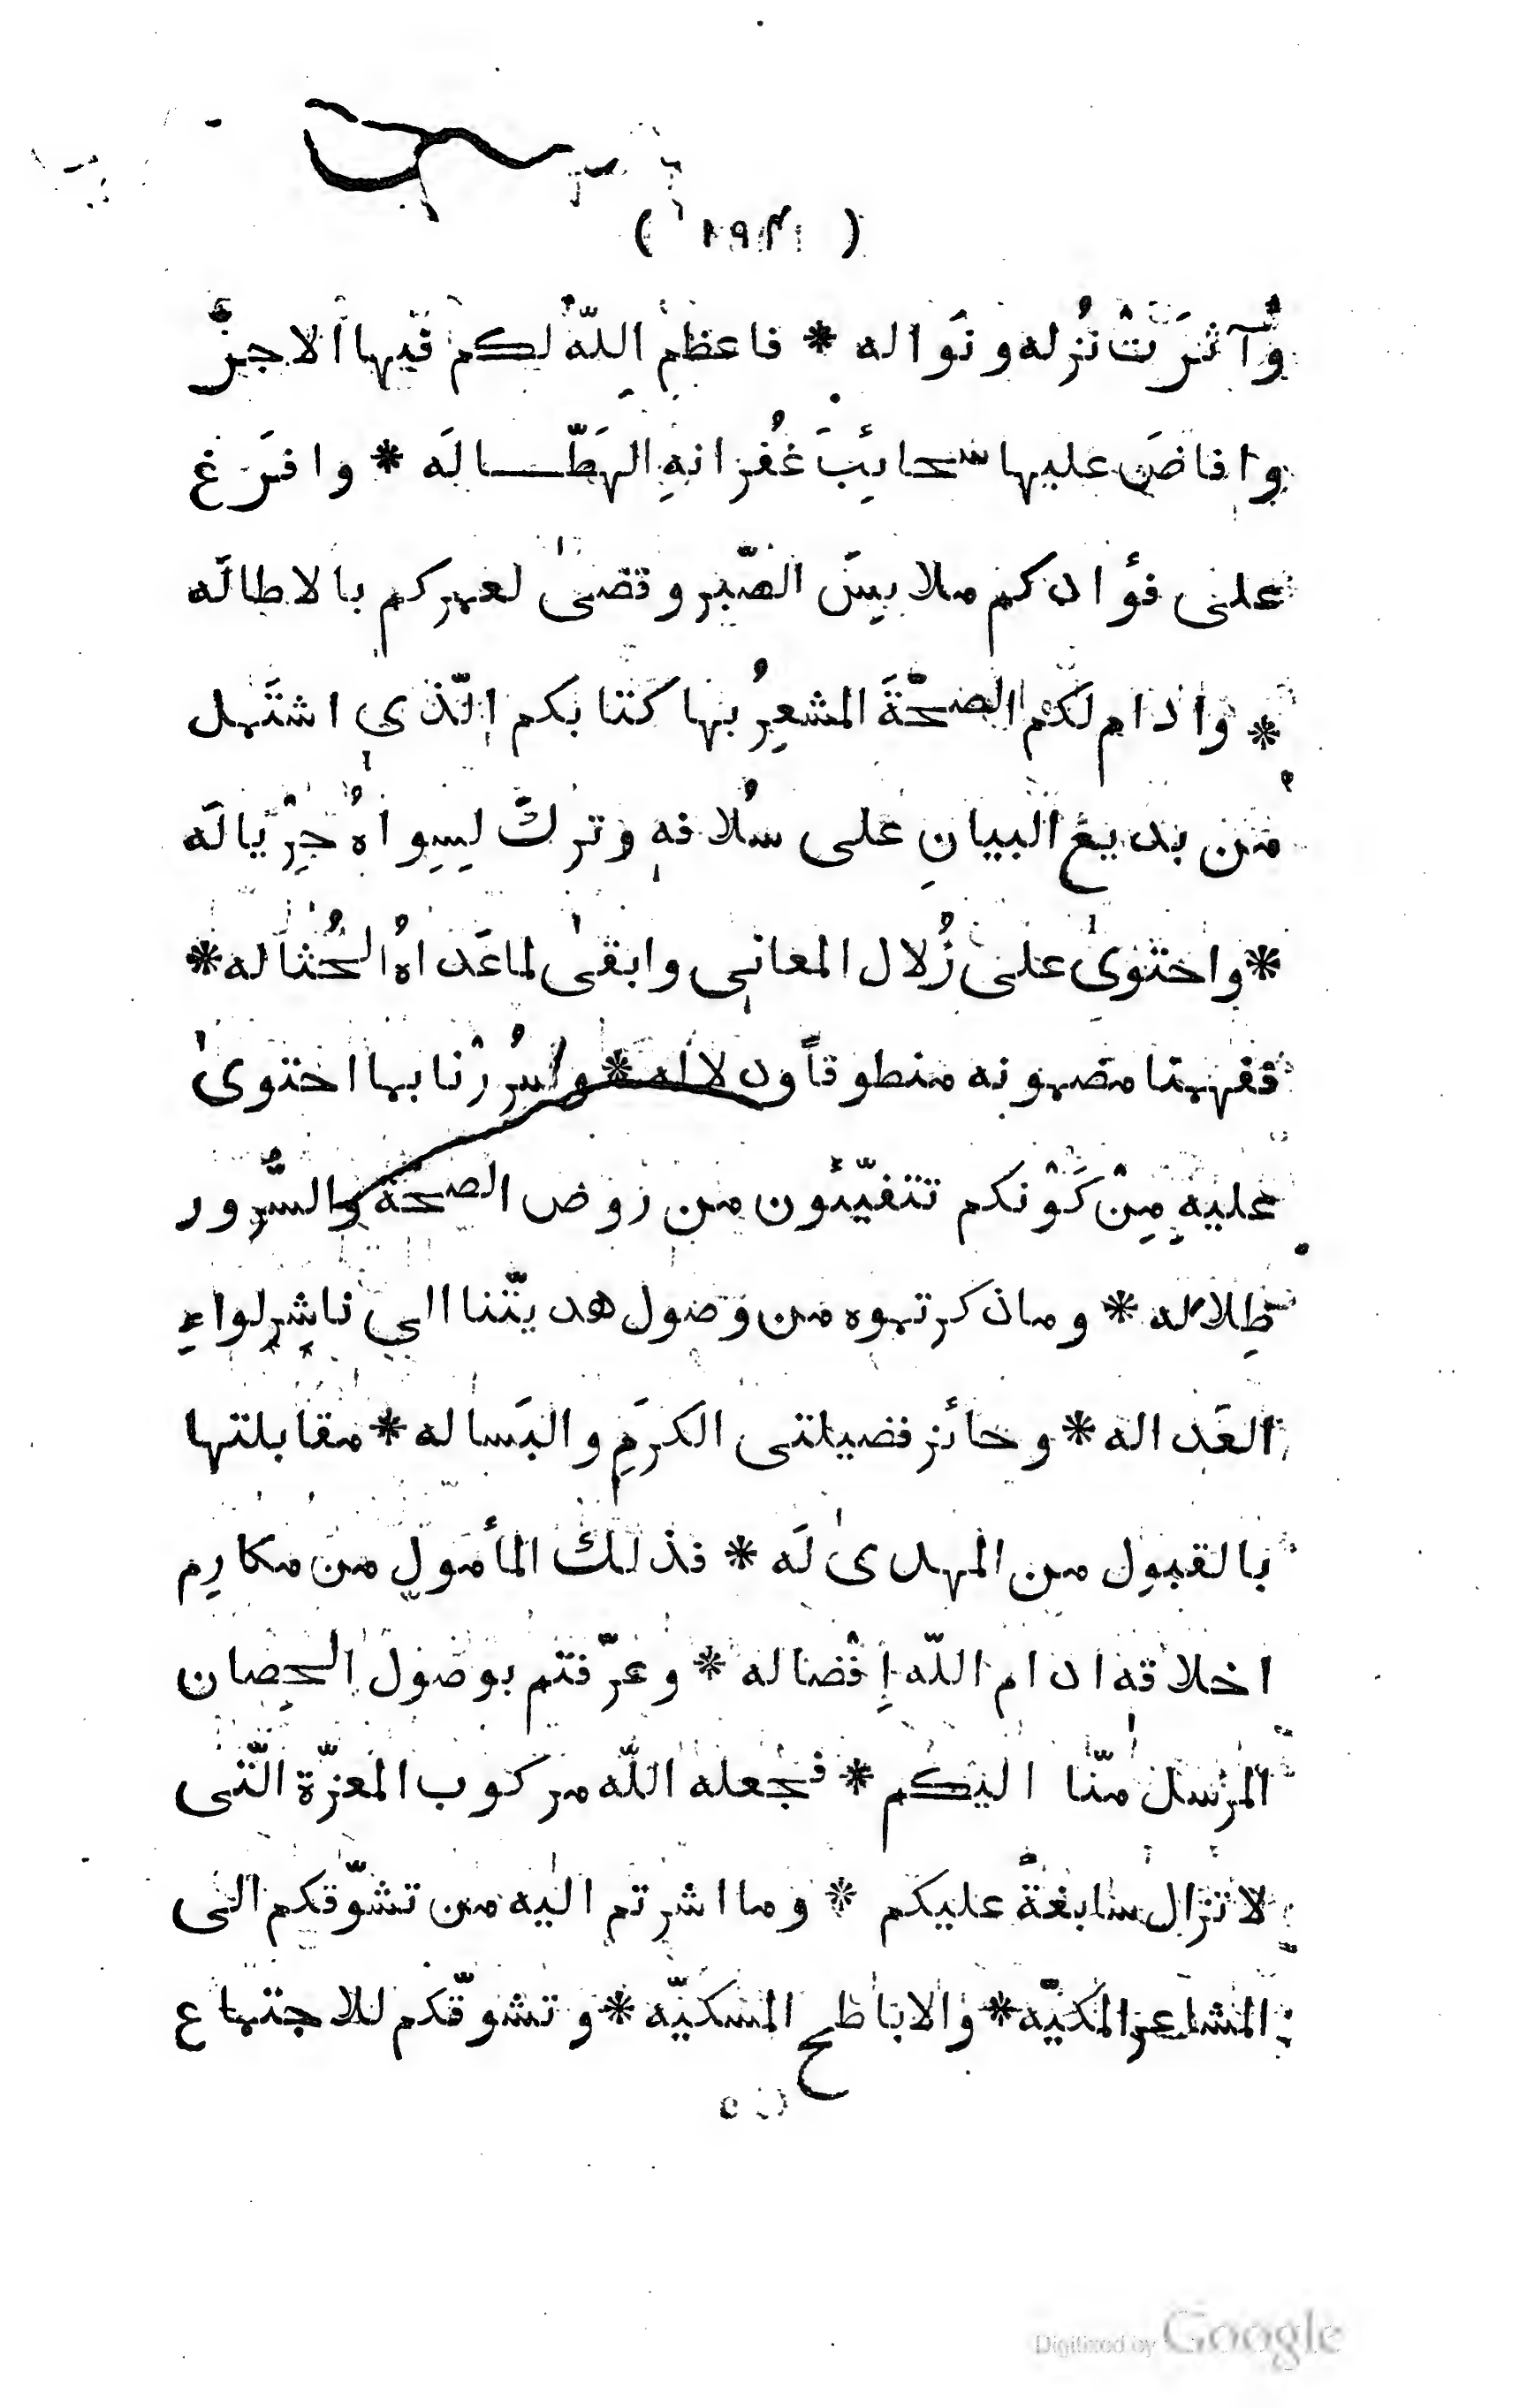 وآثَرَتْ نُزله ونَواله * فاعظم اللّه لكم فيها الاجر
وافاض عليها سحائِبَ غُفرانهِ الهَطّالَه * وافرَغ
على فؤادكم ملابِسَ الصّبر وقضىٰ لعمركم بالاطالَه
* وادام لكم الصحّةَ المشعِرُ بها كتابكم الّذى اشتَمل
من بديع البيانِ على سُلافهِ وتركَ لِسِواهُ جِرْيالَه
* واحتوىٰ على زُلال المعانى وابقىٰ لما عَداهُ الحُثاله *
ففهمنا مضمونه منطوقاً ودلاله * وسُررْنا بما احتوىٰ
عليهِ مِنْ كَوْنكم تتفيّئون من روض الصحّة والسُّرور
ظِلاله * وما ذكرتموه من وصول هديتّنا الى ناشِرِ لواءِ
العَداله * وحائز فضيلتى الكرَمِ والبَساله * مقابلتها
بالقبول من المهدىٰ لَه * فذلك المأمول من مكارِم
اخلاقه ادام اللّه إفْضاله * وعرّفتم بوصُول الحِصان
المرْسل منّا اليكم * فجعله اللّه مركوب المعزّة الّتى
لا تزال سابغةً عليكم * وما اشرتم اليه من تشوّقكم الى
المشاعر المكيّه * والاباطح المسكيّه * وتشوقّكم للاجتماع
Digitized by Google